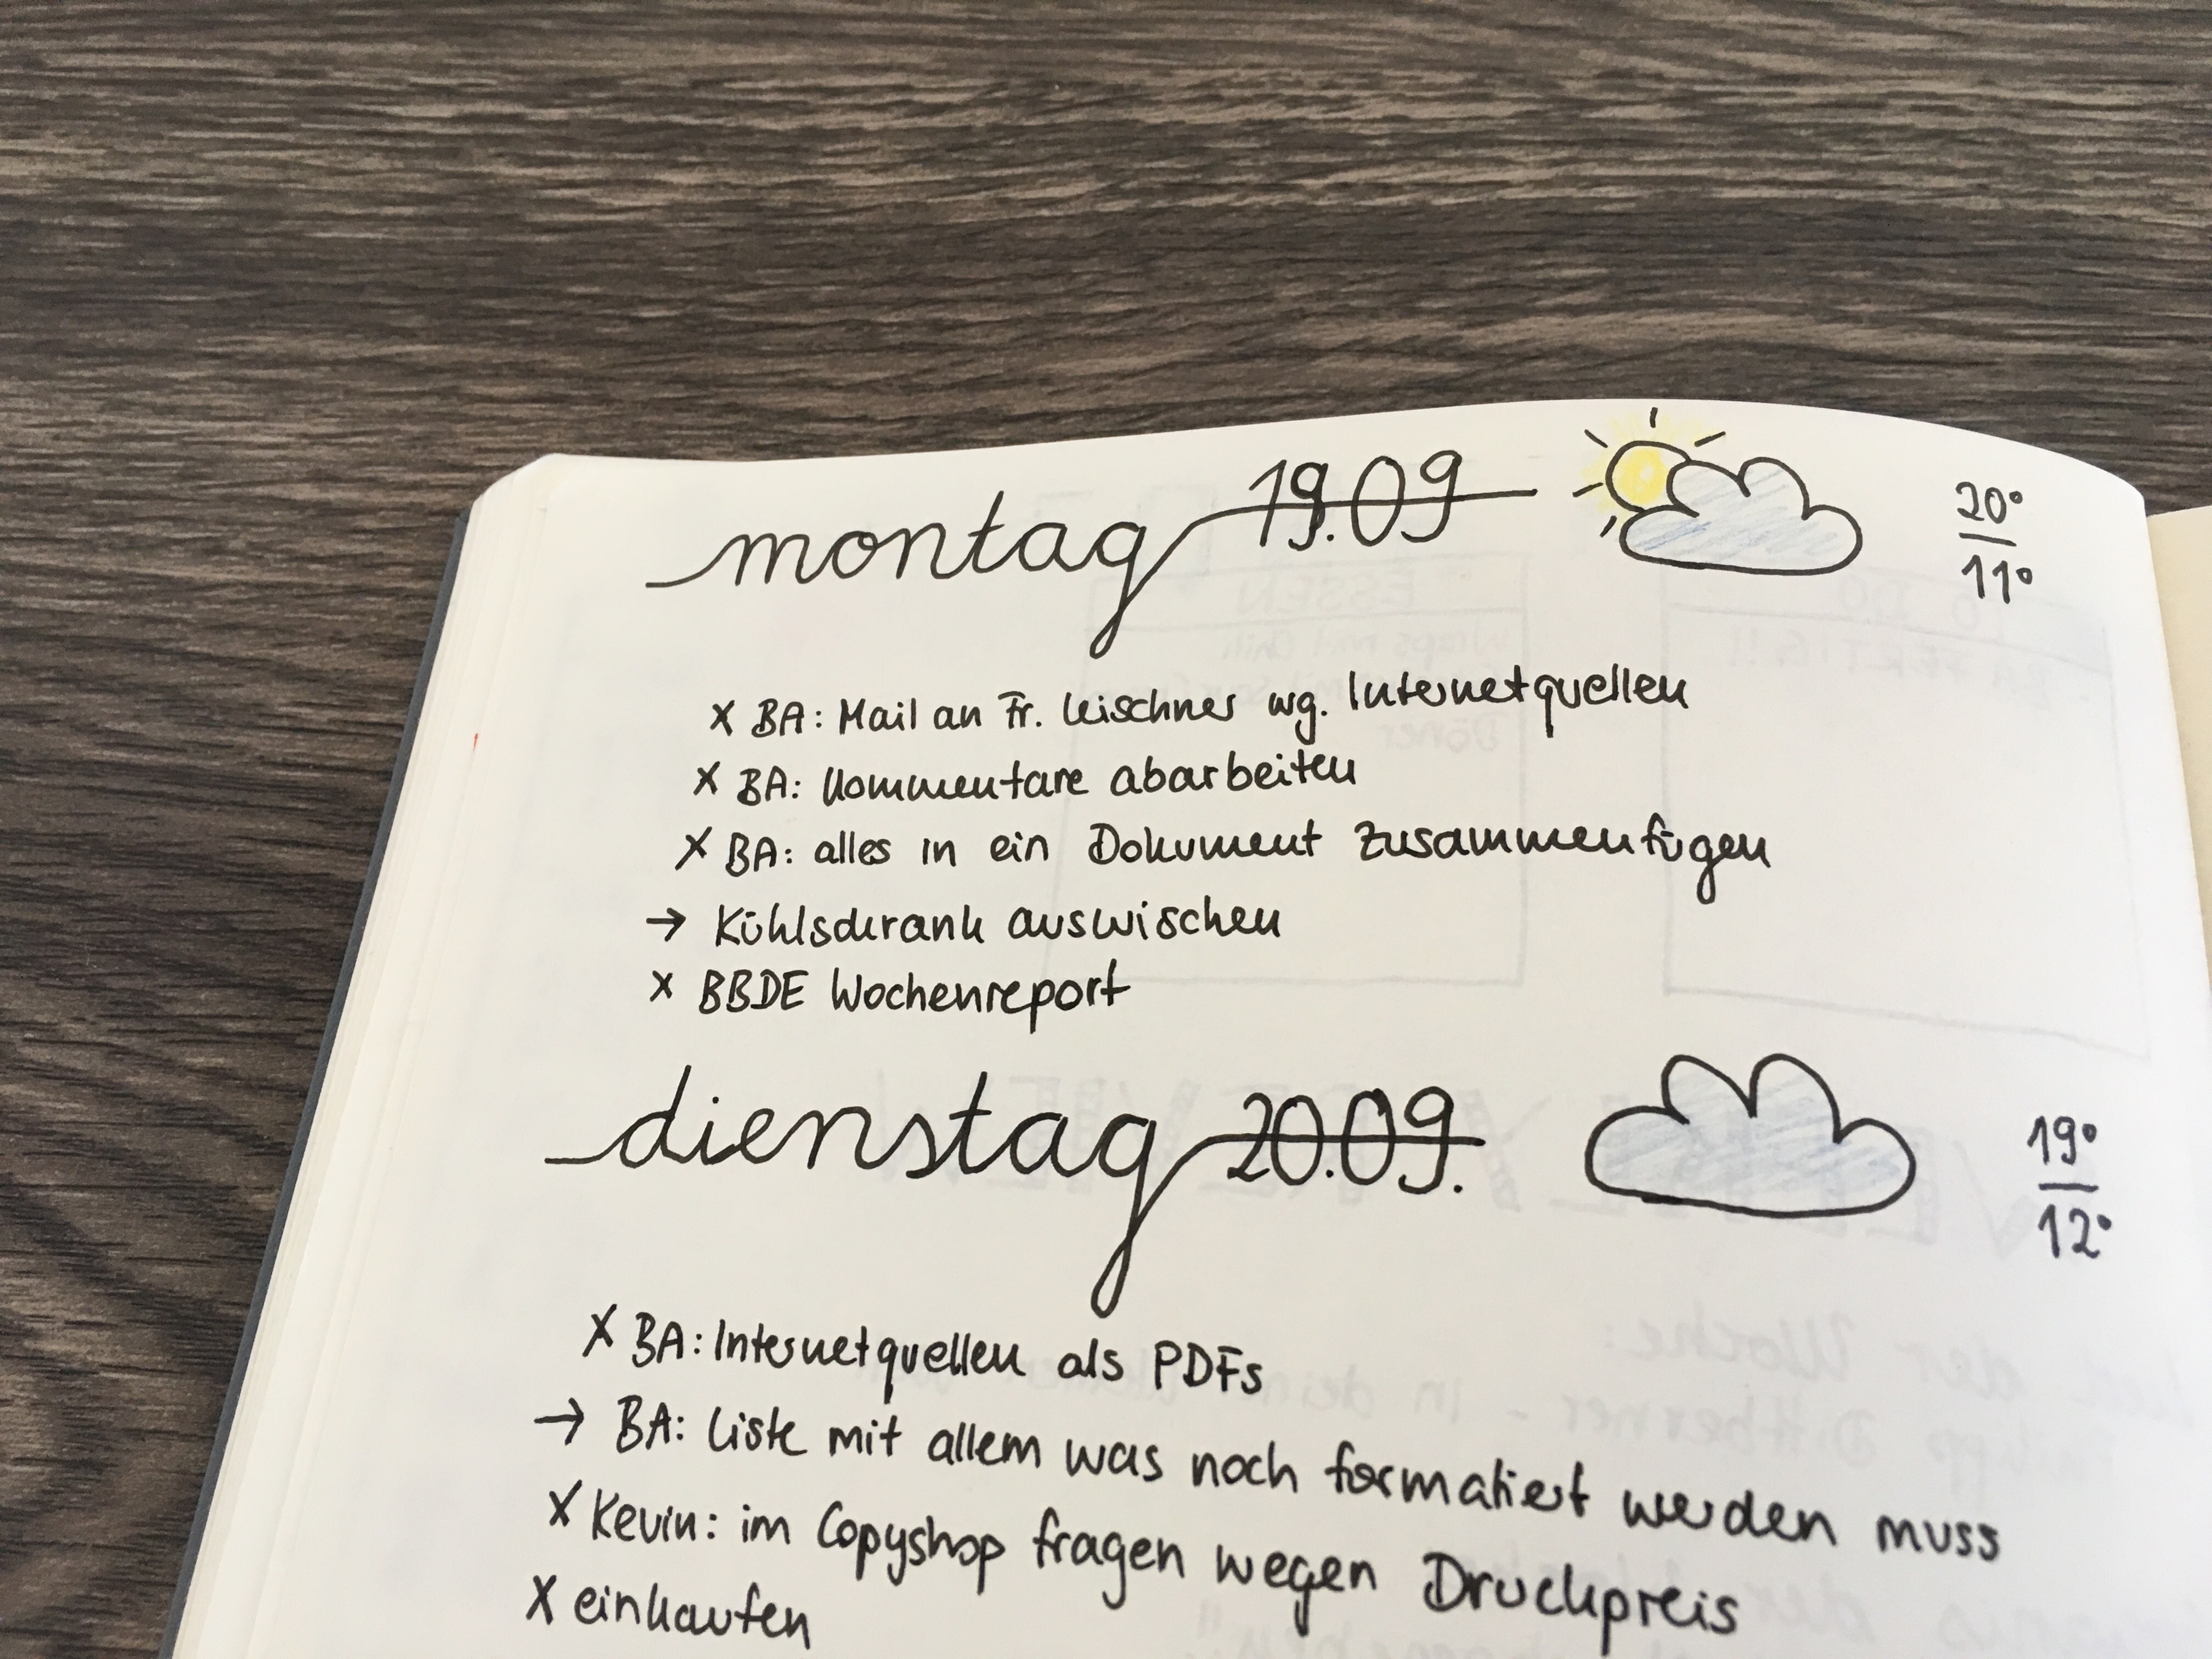 montag 19.09
20°
11°
x BA: Mail an Fr. Leischner wg. Internetquellen
x BA: Kommentare abarbeiten
x BA: alles in ein Dokument zusammenfügen
→ Kühlschrank auswischen
x BBDE Wochenreport
dienstag 20.09.
19°
12°
x BA: Internetquellen als PDFs
→ BA: Liste mit allem was noch formatiert werden muss
x Kevin: im Copyshop fragen wegen Druckpreis
x einkaufen